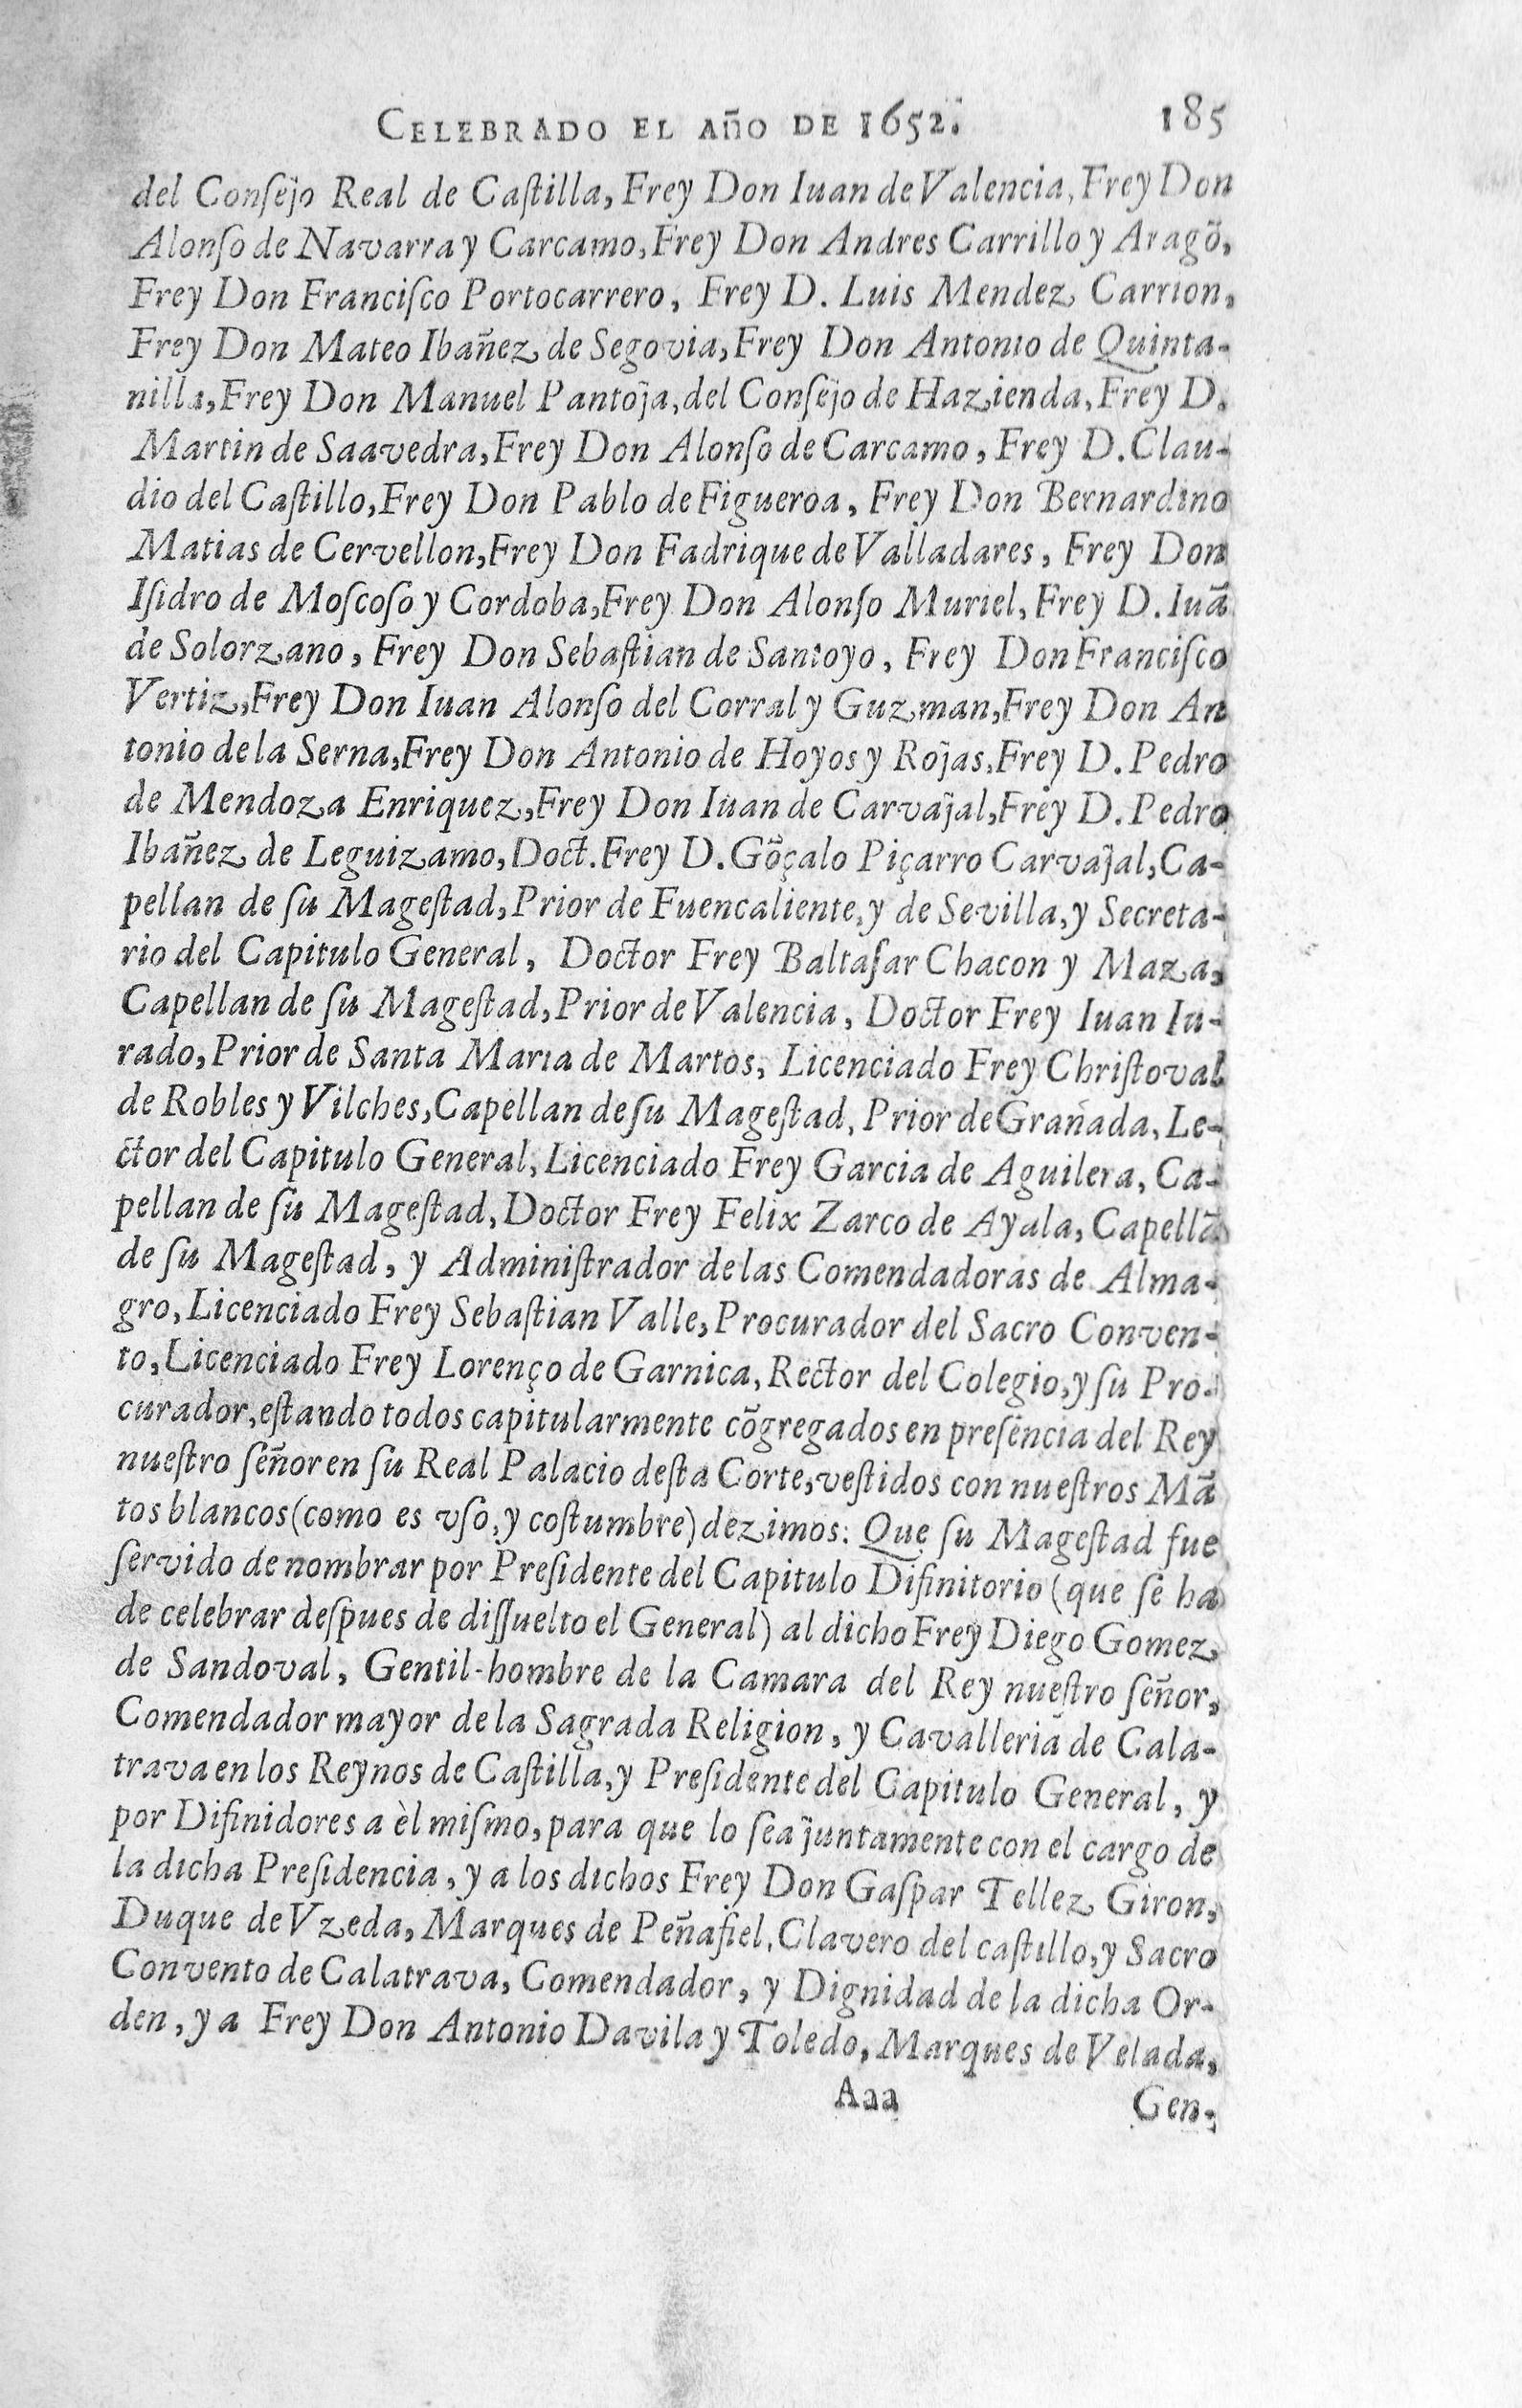 CELEBRADO EL Año DE 1652. 185
del Conſejo Real de Caſtilla, Frey Don Iuan de Valencia, Frey Don
Alonſo de Navarra y Carcamo, Frey Don Andres Carrillo y Aragõ,
Frey Don Franciſco Portocarrero, Frey D. Luis Mendez Carrion,
Frey Don Mateo Ibañez de Segovia, Frey Don Antonio de Quinta-
nilla, Frey Don Manuel Pantoja, del Conſejo de Hazienda, Frey D.
Martin de Saavedra, Frey Don Alonſo de Carcamo, Frey D. Clau-
dio del Caſtillo, Frey Don Pablo de Figueroa, Frey Don Bernardino
Matias de Cervellon, Frey Don Fadrique de Valladares, Frey Don
Iſidro de Moſcoſo y Cordoba, Frey Don Alonſo Muriel, Frey D. Iuã
de Solorzano, Frey Don Sebaſtian de Santoyo, Frey Don Franciſco
Vertiz, Frey Don Iuan Alonſo del Corral y Guzman, Frey Don An
tonio de la Serna, Frey Don Antonio de Hoyos y Rojas, Frey D. Pedro
de Mendoza Enriquez, Frey Don Iuan de Carvajal, Frey D. Pedro
Ibañez de Leguizamo, Doct. Frey D. Gõçalo Piçarro Carvajal, Ca-
pellan de ſu Mageſtad, Prior de Fuencaliente, y de Sevilla, y Secreta-
rio del Capitulo General, Doctor Frey Baltaſar Chacon y Maza,
Capellan de ſu Mageſtad, Prior de Valencia, Doctor Frey Iuan Iu-
rado, Prior de Santa Maria de Martos, Licenciado Frey Chriſtoval
de Robles y Vilches, Capellan de ſu Mageſtad, Prior de Granada, Le-
ctor del Capitulo General, Licenciado Frey Garcia de Aguilera, Ca-
pellan de ſu Mageſtad, Doctor Frey Felix Zarco de Ayala, Capellã
de ſu Mageſtad, y Adminiſtrador de las Comendadoras de Alma-
gro, Licenciado Frey Sebaſtian Valle, Procurador del Sacro Conven-
to, Licenciado Frey Lorenço de Garnica, Rector del Colegio, y ſu Pro-
curador, eſtando todos capitularmente cõgregados en preſencia del Rey
nueſtro ſeñor en ſu Real Palacio deſta Corte, veſtidos con nueſtros Mã
tos blancos (como es vſo, y coſtumbre) dezimos: Que ſu Mageſtad fue
ſervido de nombrar por Preſidente del Capitulo Difinitorio (que ſe ha
de celebrar deſpues de diſſuelto el General) al dicho Frey Diego Gomez
de Sandoval, Gentil-hombre de la Camara del Rey nueſtro ſeñor,
Comendador mayor de la Sagrada Religion, y Cavalleria de Cala-
trava en los Reynos de Caſtilla, y Preſidente del Capitulo General, y
por Difinidores a èl miſmo, para que lo ſea juntamente con el cargo de
la dicha Preſidencia, y a los dichos Frey Don Gaſpar Tellez Giron,
Duque de Vzeda, Marques de Peñafiel, Clavero del caſtillo, y Sacro
Convento de Calatrava, Comendador, y Dignidad de la dicha Or-
den, y a Frey Don Antonio Davila y Toledo, Marques de Velada,
Aaa Gen-